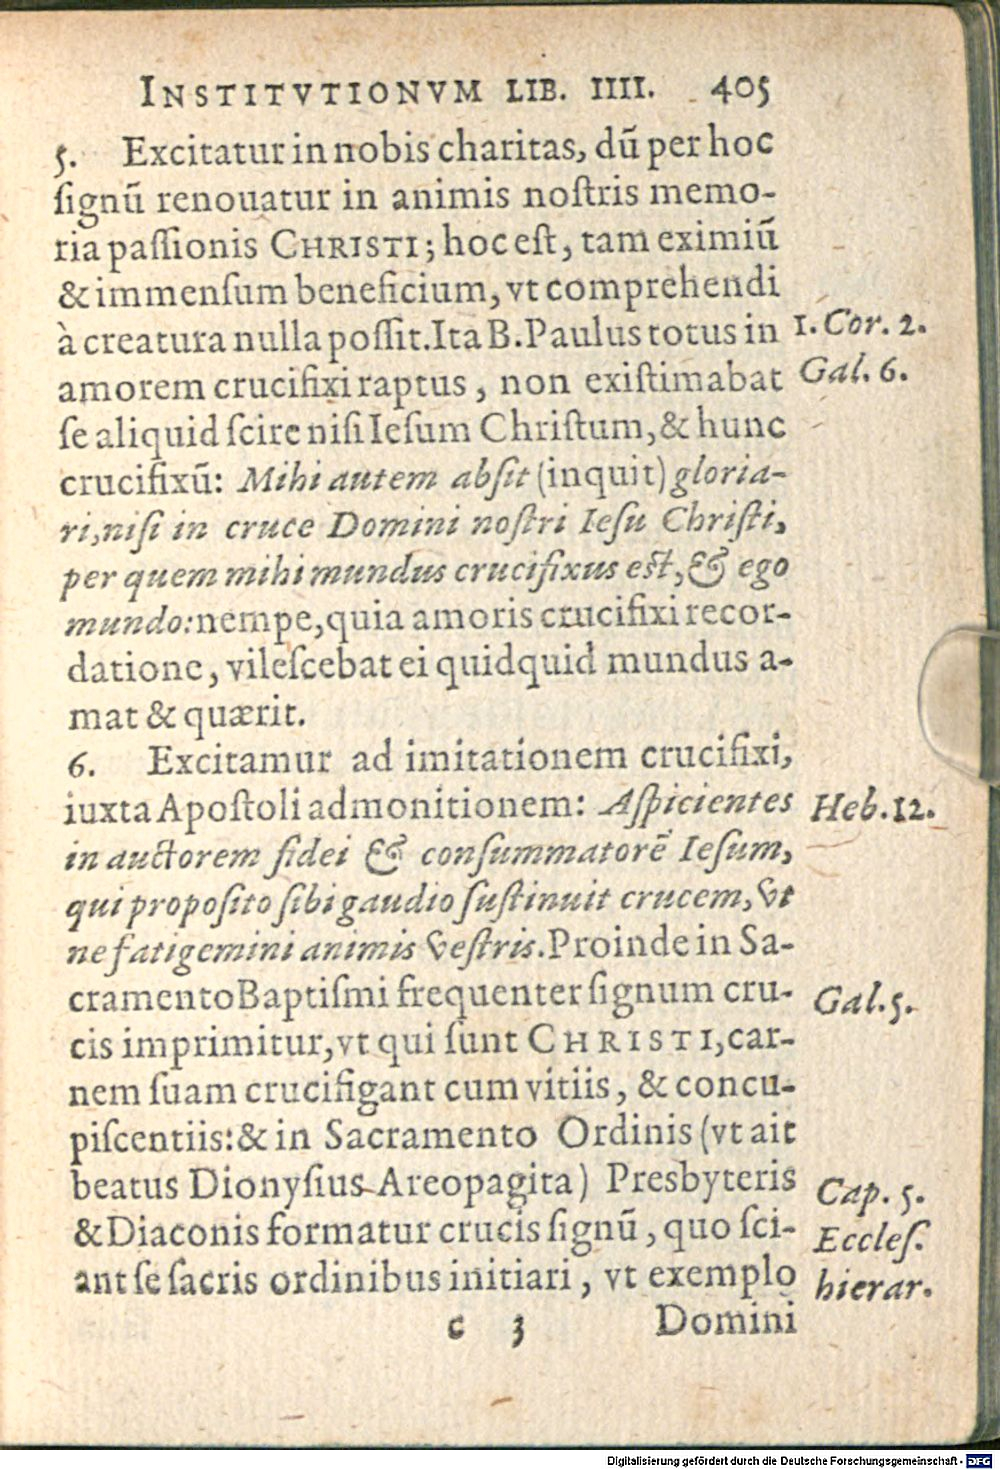 INSTITVTIONVM LIB. IIII. 405
5. Excitatur in nobis charitas, dũ per hoc
ſignũ renouatur in animis noſtris memo-
ria paſſionis CHRISTI; hoc eſt, tam eximiũ
& immenſum beneficium, vt comprehendi
à creatura nulla poſſit. Ita B. Paulus totus in
1. Cor. 2.
amorem crucifixi raptus, non existimabat
Gal. 6.
ſe aliquid ſcire niſi Ieſum Chriſtum, & hunc
crucifixũ: Mihi autem abſit (inquit) gloria-
ri, niſi in cruce Domini noſtri Ieſu Chriſti,
per quem mihi mundus crucifixus eſt, & ego
mundo: nempe, quia amoris crucifixi recor-
datione, vileſcebat ei quidquid mundus a-
mat & quærit.
6. Excitamur ad imitationem crucifixi,
iuxta Apoſtoli admonitionem: Aſpicientes
Heb. 12.
in auctorem fidei & conſummatorẽ Ieſum,
qui propoſito ſibi gaudio ſuſtinuit crucem, vt
ne fatigemini animis veſtris. Proinde in Sa-
cramento Baptiſmi frequenter ſignum cru-
Gal. 5.
cis imprimitur, vt qui ſunt CHRISTI, car-
nem ſuam crucifigant cum vitiis, & concu-
piſcentiis: & in Sacramento Ordinis (vt ait
beatus Dionyſius Areopagita) Presbyteris
Cap. 5.
& Diaconis formatur crucis ſignũ, quo ſci-
Eccleſ.
ant ſe ſacris ordinibus initiari, vt exemplo
hierar.
c 3 Domini
Digitalisierung gefördert durch die Deutsche Forschungsgemeinschaft - DFG